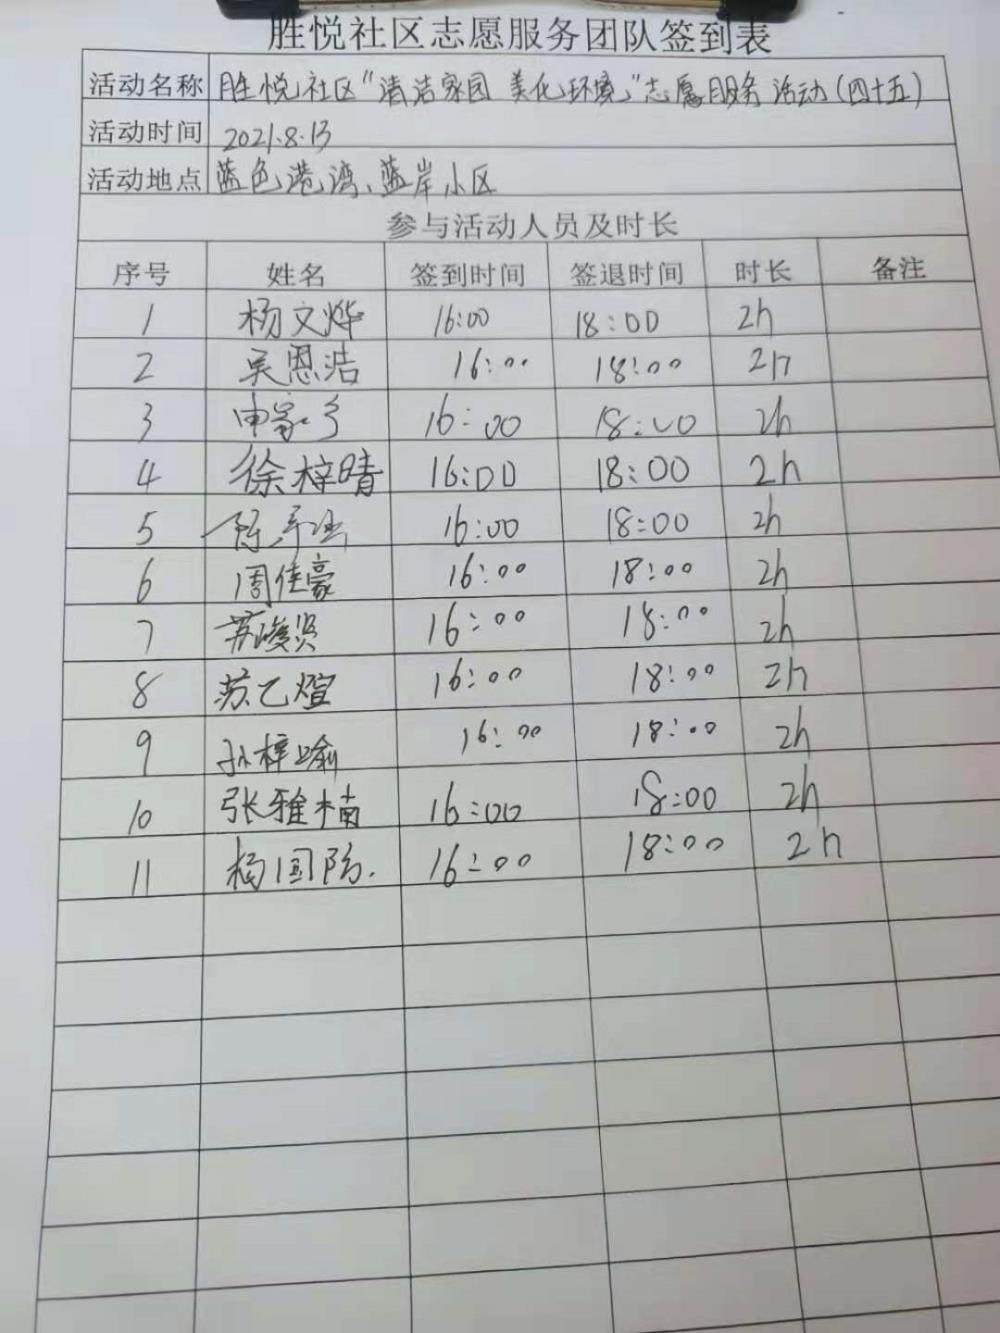 胜悦社区志愿服务团队签到表
活动名称 胜悦社区“清洁家园 美化环境”志愿服务活动(四十五)
活动时间 2021.8.13
活动地点 蓝色港湾、蓝岸小区
参与活动人员及时长
序号 姓名 签到时间 签退时间 时长 备注
1 杨文烨 16:00 18:00 2h
2 吴恩浩 16:00 18:00 2h
3 16:00 18:00 2h
4 徐梓晴 16:00 18:00 2h
5 16:00 18:00 2h
6 周佳豪 16:00 18:00 2h
7 苏峻贤 16:00 18:00 2h
8 苏乙煊 16:00 18:00 2h
9 孙梓喻 16:00 18:00 2h
10 张雅楠 16:00 18:00 2h
11 杨国防. 16:00 18:00 2h